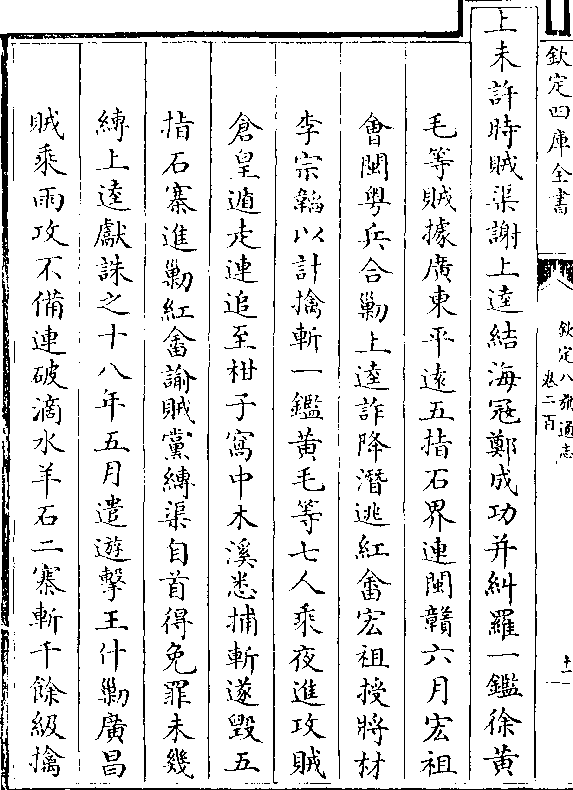 欽定四庫全書
欽定八旗通志
卷二百
十一
上未許時賊渠謝上逵結海冦鄭成功并糾羅一鑑徐黄
毛等賊據廣東平逺五指石界連閩贛六月宏祖
㑹閩粤兵合勦上逵詐降潛逃紅畬宏祖授將材
李宗韜以計擒斬一鑑黄毛等七人乘夜進攻賊
倉皇遁走連追至柑子窩中木溪悉捕斬遂毁五
指石寨進勦紅畬諭賊黨縛渠自首得免罪未幾
縛上逵獻誅之十八年五月遣遊擊王什勦廣昌
賊乘雨攻不備連破滴水羊石二寨斬千餘級擒